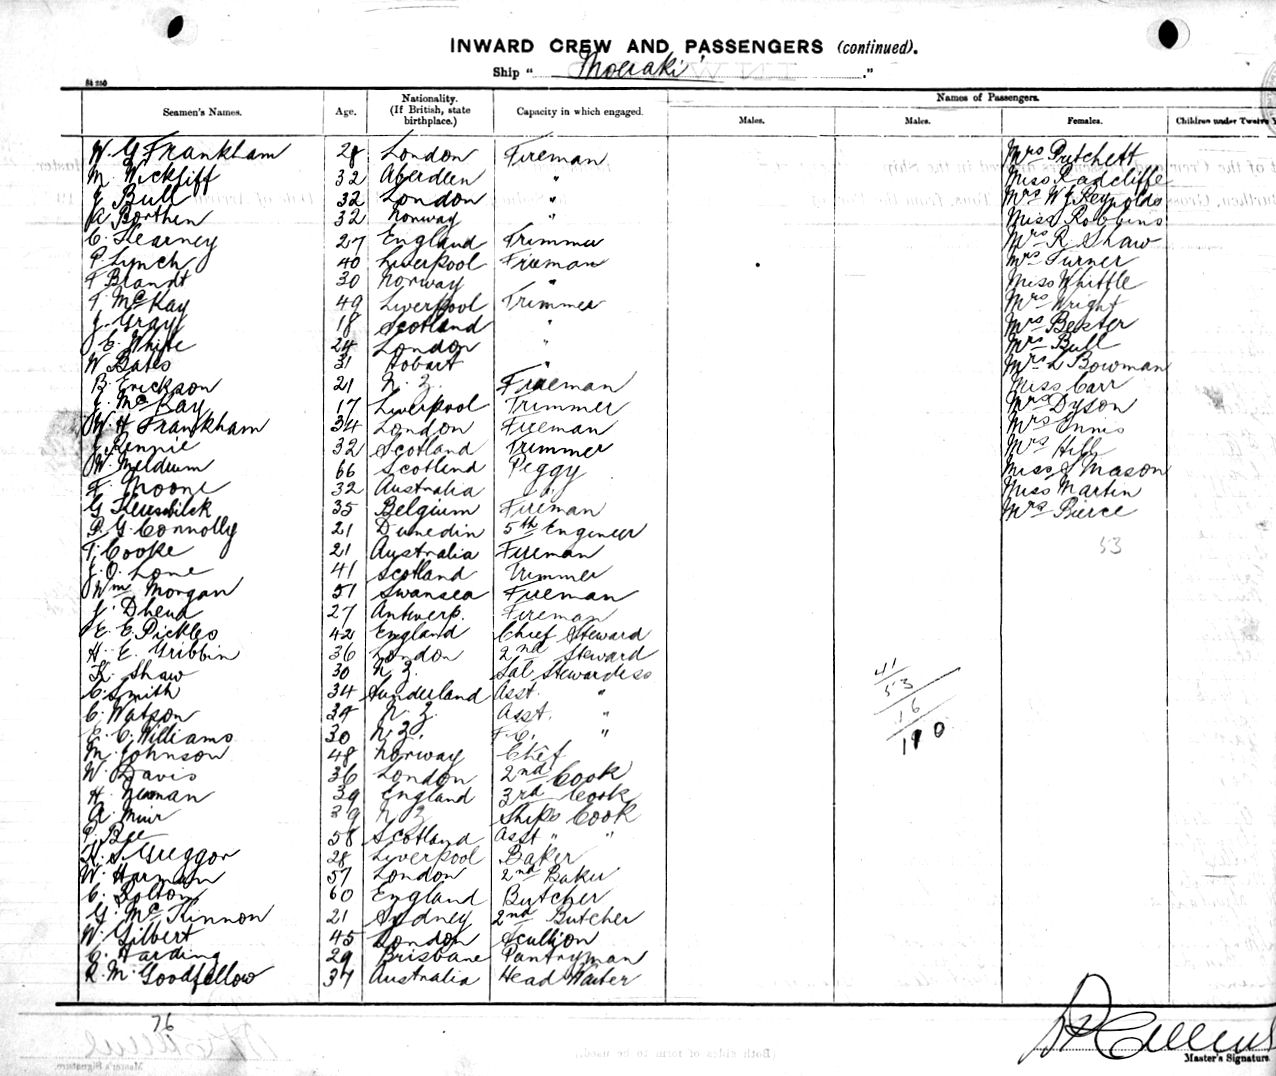 INWARD CREW AND PASSENGERS (continued).
Ship " Moeraki "
Names of Passengers.
Seamen's Names. Age. Nationality. (If British, state birthplace.) Capacity in which engaged. Males. Males. Females. Children under Twelve
W. G Frankham 28 London Fireman Mrs Pritchett
M. Wickliff 32 Aberdeen " Miss Radcliffe
J Bull 32 London " Mrs W J Reynolds
A Borthen 32 Norway " Miss Robbins
C. Kearney 27 England Trimmer Mrs R. Shaw
P. Lynch 40 Liverpool Fireman Mrs Turner
F Brandt 30 Norway " Miss Whittle
T McKay 49 Liverpool Trimmer Mrs Wright
J. Gray 18 Scotland " Mrs Bexter
J E. White 24 London " Mrs Bull
W Bates 31 Hobart " Mrs L Bowman
B. Erickson 21 N. Z. Fireman Miss Carr
J. McKay 17 Liverpool Trimmer Mrs Dyson
W. H Frankham 34 London Fireman Mrs Innis
J Rennie 32 Scotland Trimmer Mrs Hill
W. Meldrum 66 Scotland Peggy Miss J Mason
F. Moone 32 Australia " Miss Martin
G 35 Belgium Fireman Mrs Pierce
P. G. Connolly 21 Dunedin 5th Engineer
T. Cooke 21 Australia Fireman 53
J. O. Lone 41 Scotland Trimmer
Wm Morgan 51 Swansea Fireman
J. Dheud 27 Antwerp. Fireman
E. E Pickles 42 England Chief Steward
H. E. Gribbin 36 London 2nd Steward
K. Shaw 30 N Z. Sal Stewardess 41
C. Smith 34 Sunderland Asst. " 53
C. Watson 39 N. Z. Asst. " 16
E. C. Williams 30 N. Z. F. C. " 110
M. Johnson 48 Norway Chef
W. Davis 36 London 2nd Cook
H. Newman 39 England 3rd Cook
A. Muir 39 N Z Ships Cook
P. Bee 58 Scotland Asst " "
H. S. Greggor 28 Liverpool Baker
W. Harman 57 London 2nd Baker
C. Bolton 60 England Butcher
G. McKinnon 21 Sydney 2nd Butcher
W. Gilbert 45 London Scullion
C. Harding 29 Brisbane Pantryman
R. M. Goodfellow 37 Australia Head Waiter
76
Master's Signature